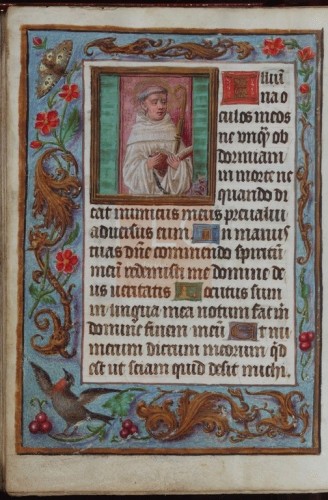 Illumi
na o
culos meos
ne unq̄ ob
dormiam
in morte ne
quando di
cat inimicus meus preualui
aduersus eum In manus
tuas dn̄e commendo spiritū
meū redemisti me domine de
us veritatis Locutus sum
in lingua mea notum fac m̄
domine finem meū Et nu
merum dierum meorum q̄d
est ut sciam quid desit michi.